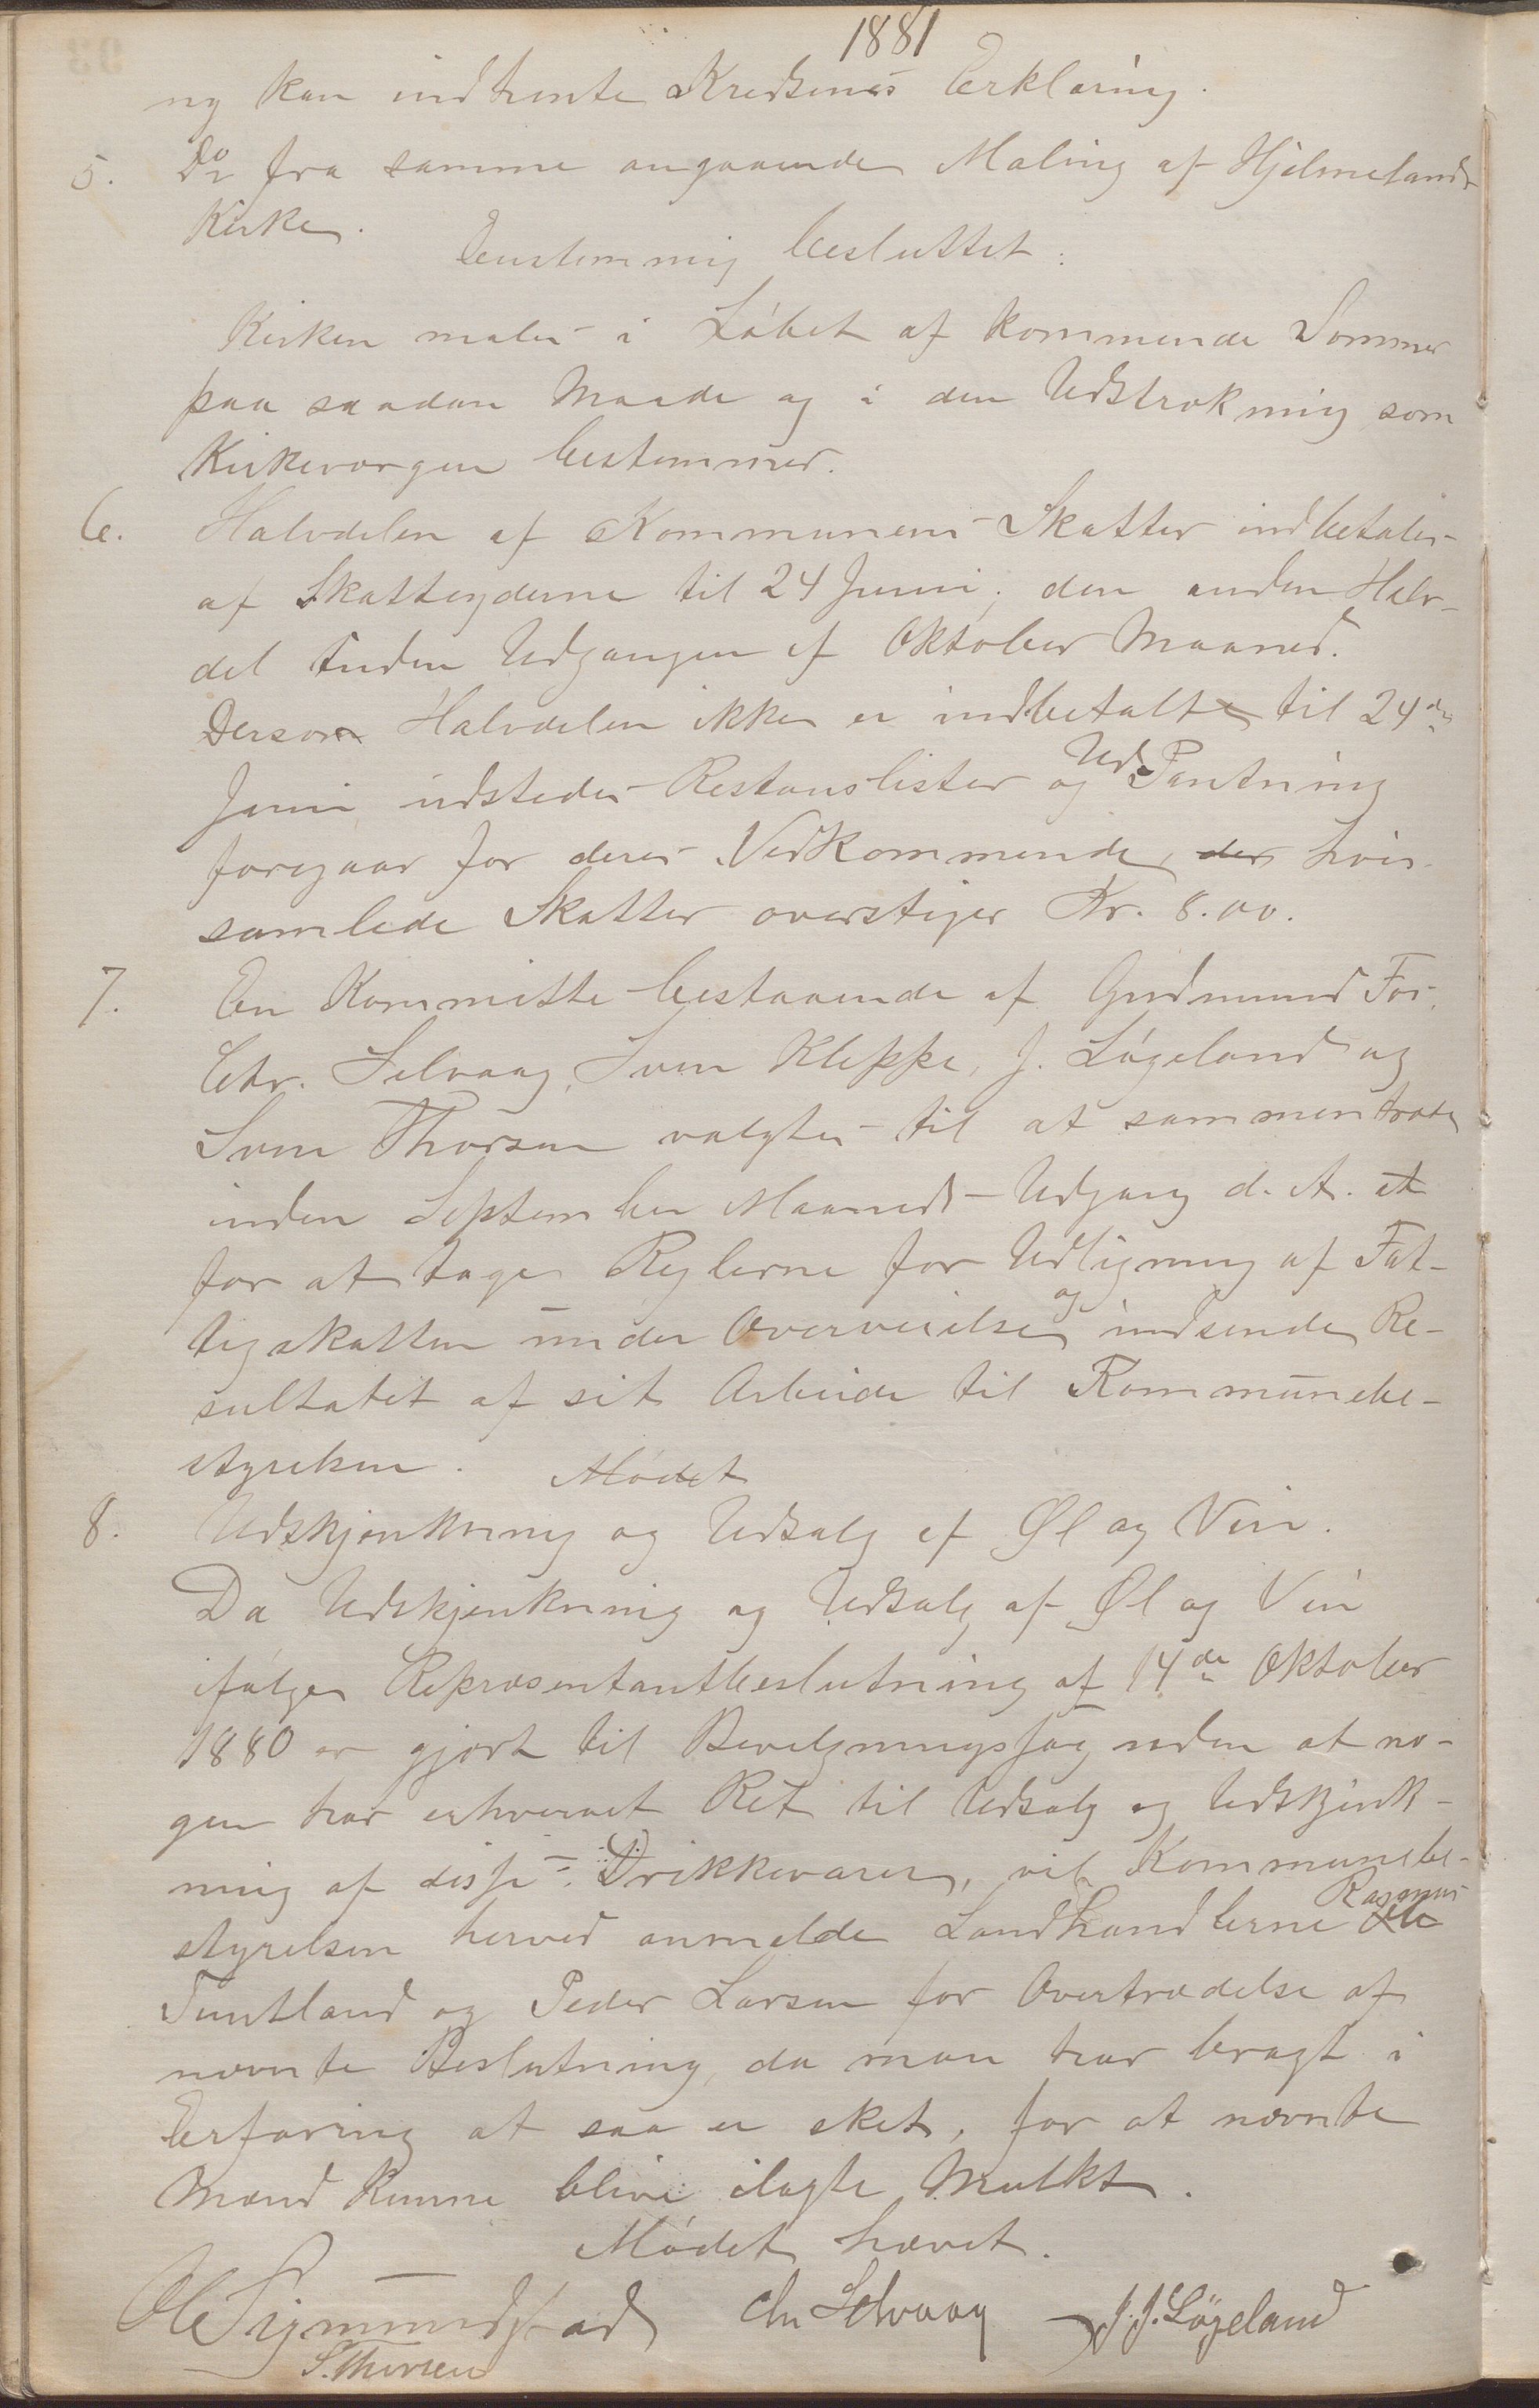 1881
ng kan indhente Kredsenes Erklæring.
5. Do fra samme angaaende Maling af Hjelmelands
Kirke.
Eenstemmig besluttet:
Kirken males i Løbet af kommende Sommer
paa saadan Maade og i den Udstrækning som
Kirkeværgen bestemmer.
6. Halvdelen af Kommunens Skatter indbetales
af Skatteyderne til 24 Juni; den anden Halv-
del inden Udgangen af Oktober Maaned.
Dersom Halvdelen ikke er indbetalt til 24de
Juni udstedes Restanslister og Ud Pantning
foregaar for deres Vedkommende, der hvis
samlede Skatter overstiger Kr. 8.00.
7. En Kommitte bestaaende af Gudmund Fos,
Chr. Selvaag, Sven Kleppe, J. Løgeland og
Sven Thorsen valgtes til at sammentræde
inden September Maaneds Udgang d. A. at
for at tage Reglerne for Udligning af Fat-
tigskatten under Overveielse og indsende Re-
sultatet af sit Arbeide til Kommunebe-
styrelsen. Mødet
8. Udskjenkning og Udsalg af Øl og Vin.
Da Udskjenkning og Udsalg af Øl og Vin
ifølge Repræsentantbeslutning af 14de Oktober
1880 er gjort til Bevilgningssag uden at no-
gen har erhvervet Ret til Udsalg og Udskjenk-
ning af disse Drikkevarer, vil Kommunebe-
styrelsen herved anmelde Landhandlerne Ole Rasmus
Tuntland og Peder Larsen for Overtrædelse af
nævnte Beslutning, da man har bragt i
Erfaring at saa er sket, for at nævnte
Mænd kunne blive ilagte Mulkt.
Mødet hævet.
Ole Sigmundstad Chr Selvaag J. J. Løgeland
S. Thorsen